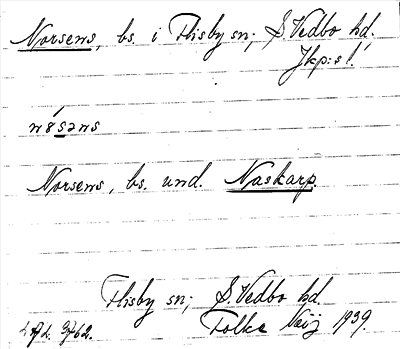 Norsens, bs. i Flisby sn; S. Vedbo hd.
Jkp:s l.
Norsens, bs. und. Naskarp.
Flisby sn; S. Vedbo hd.
Folke 1939.